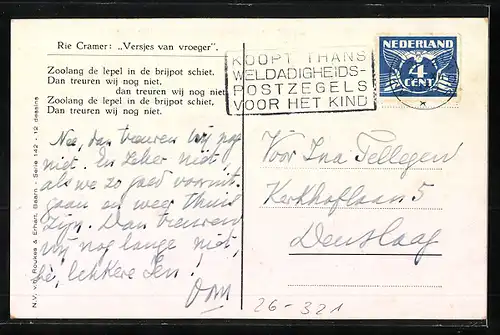 Rie Cramer: „Versjes van vroeger".
Zoolang de lepel in de brijpot schiet.
Dan treuren wij nog niet.
dan treuren wij nog niet
Zoolang de lepel in de brijpot schiet,
Dan treuren wij nog niet.
Nee, dan treuren wij nog
niet. En zeker niet,
als we zoo goed vooruit
gaan en weer thuis
zijn. Dan treuren
wij nog lange niet,
hè, lekkere Ien!
Oom
N.V. v.h. Roukes & Erhart, Baarn - Serie 142 - 12 dessins
KOOPT THANS
WELDADIGHEIDS-
POSTZEGELS
VOOR HET KIND
NEDERLAND
4
CENT
Voor Ina Tellegen
Kerkhoflaan 5
Den Haag
26-321